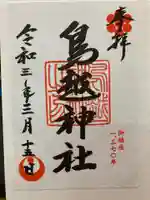 奉拝
鳥越神社
御鎮座
一三七〇年
令和三年三月十三日